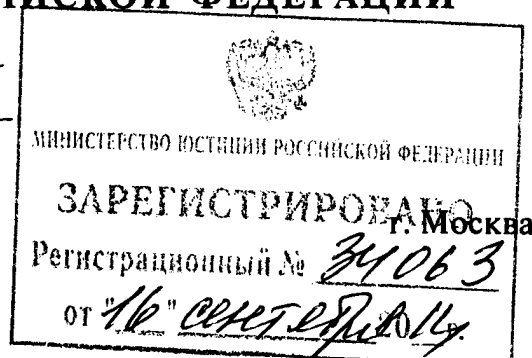 ЙСКОЙ ФЕДЕРАЦИИ
МИНИСТЕРСТВО ЮСТИЦИИ РОССИЙСКОЙ ФЕДЕРАЦИИ
ЗАРЕГИСТРИРОВАНО
г. Москва
Регистрационный № 34063
от "16" сентября 2014г.